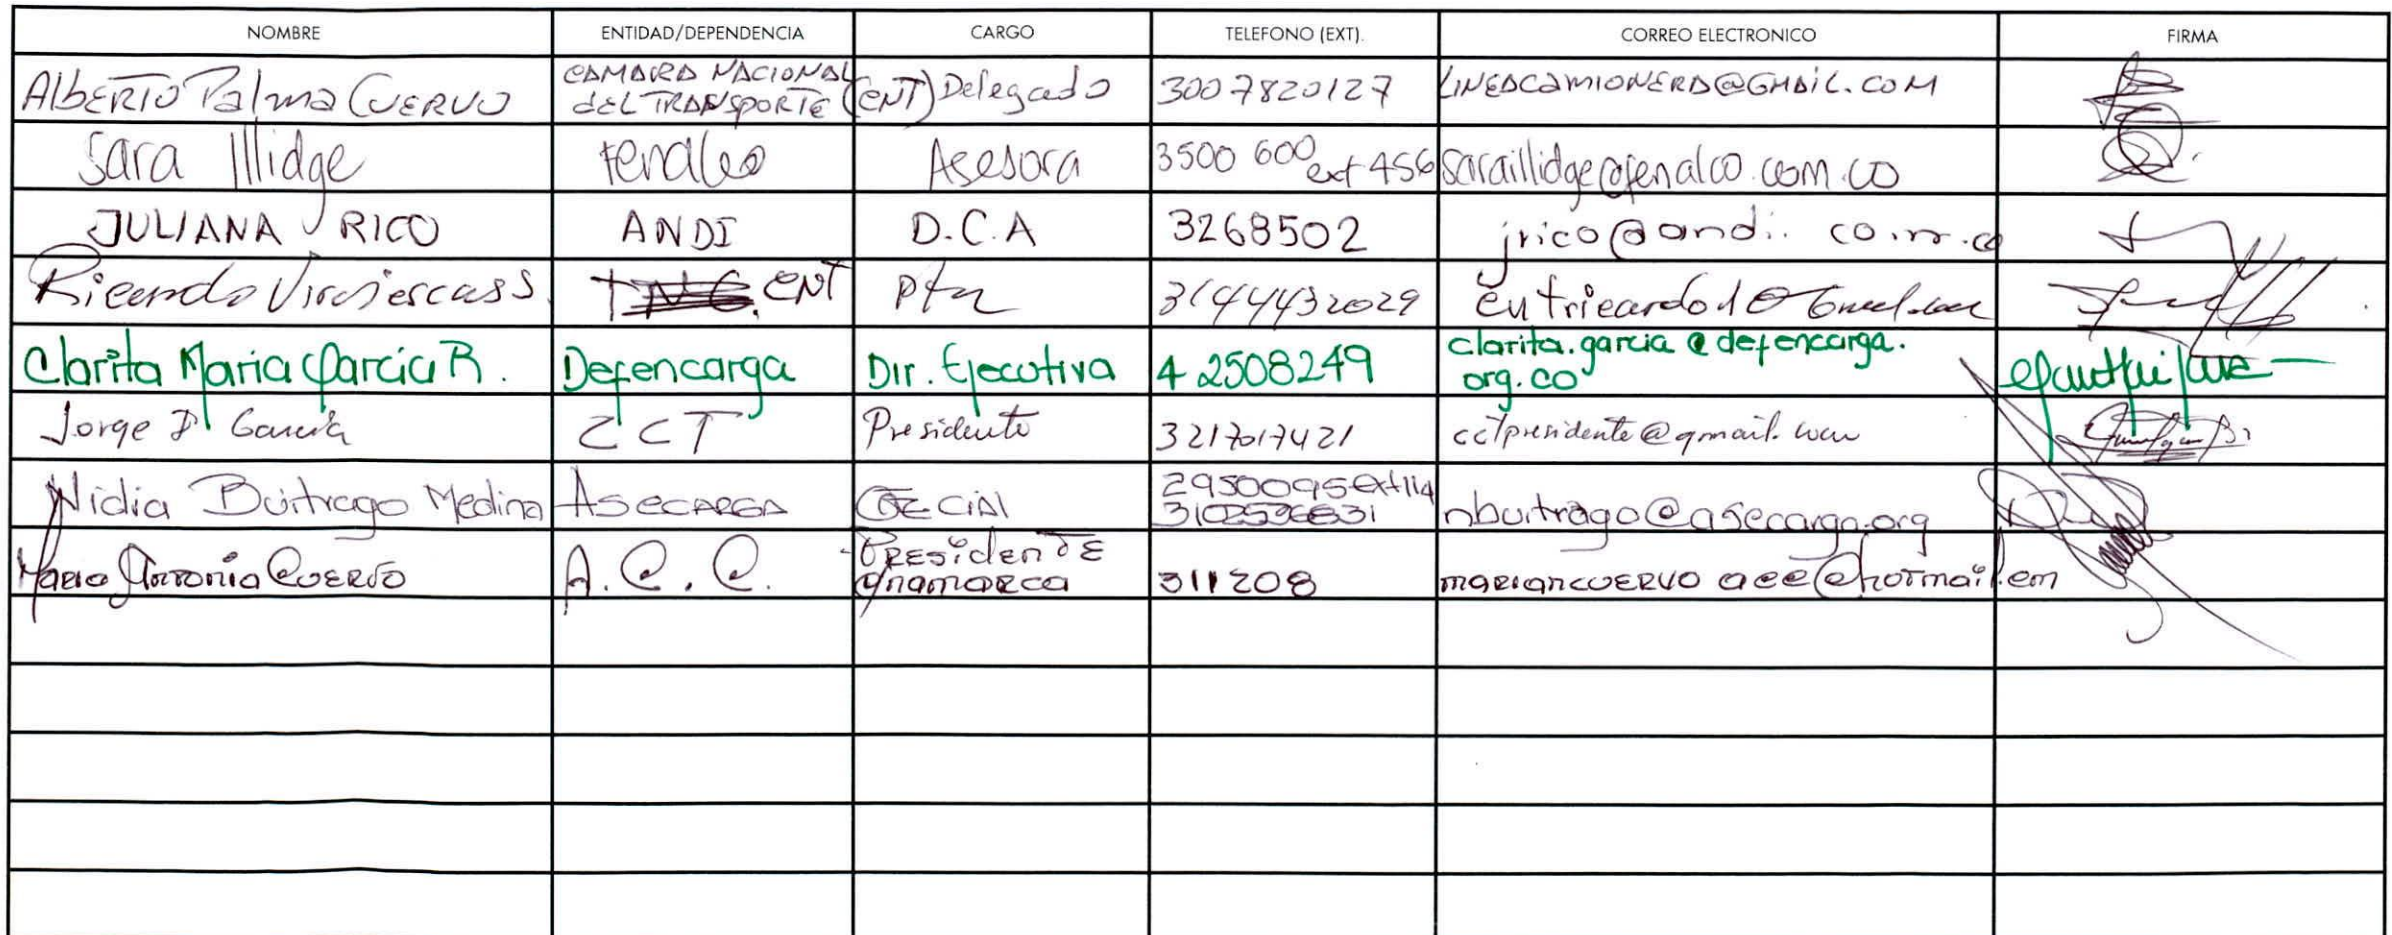 NOMBRE ENTIDAD/DEPENDENCIA CARGO TELEFONO (EXT). CORREO ELECTRONICO FIRMA
Alberto Palma Cuervo CAMARA NACIONAL DEL TRANSPORTE (CNT) Delegado 3007820127 LINEACAMIONERA@GMAIL.COM
Sara Illidge Fenalco Asesora 3500 600 ext 456 saraillidge@fenalco.com.co
JULIANA RICO ANDI D.C.A 3268502 jrico@andi.com.co
Ricardo CNT 3144432029
Clarita Maria Garcia R. Defencarga Dir. Ejecutiva 4 2508249 clarita.garcia@defencarga.
org.co
Jorge García CCT Presidente 3217017421 cctpresidente@gmail.com
Nidia Buitrago Medina ASECARGA 2950095 ext 114 nbuitrago@asecarga.org
Maria Antonia Cuervo A.C.C. Presidente 311208